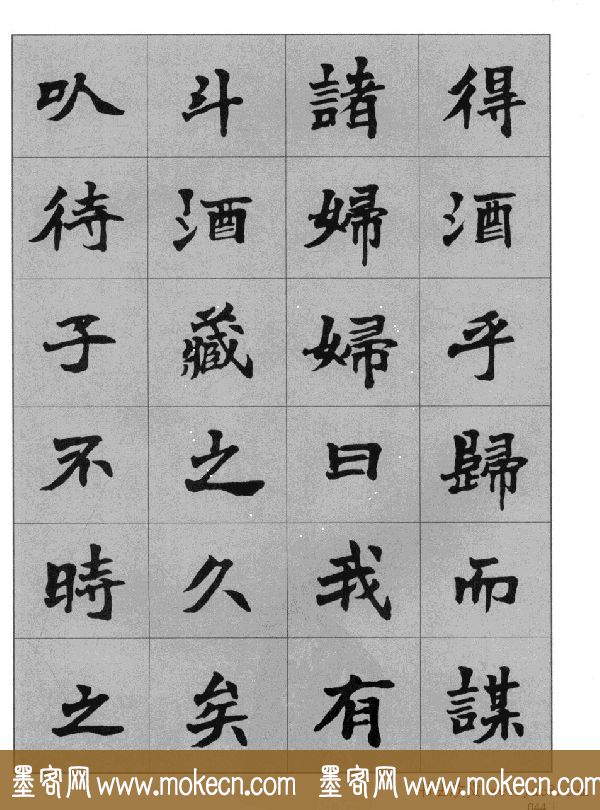 得酒乎歸而謀
諸婦婦曰我有
斗酒藏之久矣
㕥待子不時之
墨客网 www.mokecn.com 墨客网 www.mokecn.com
044